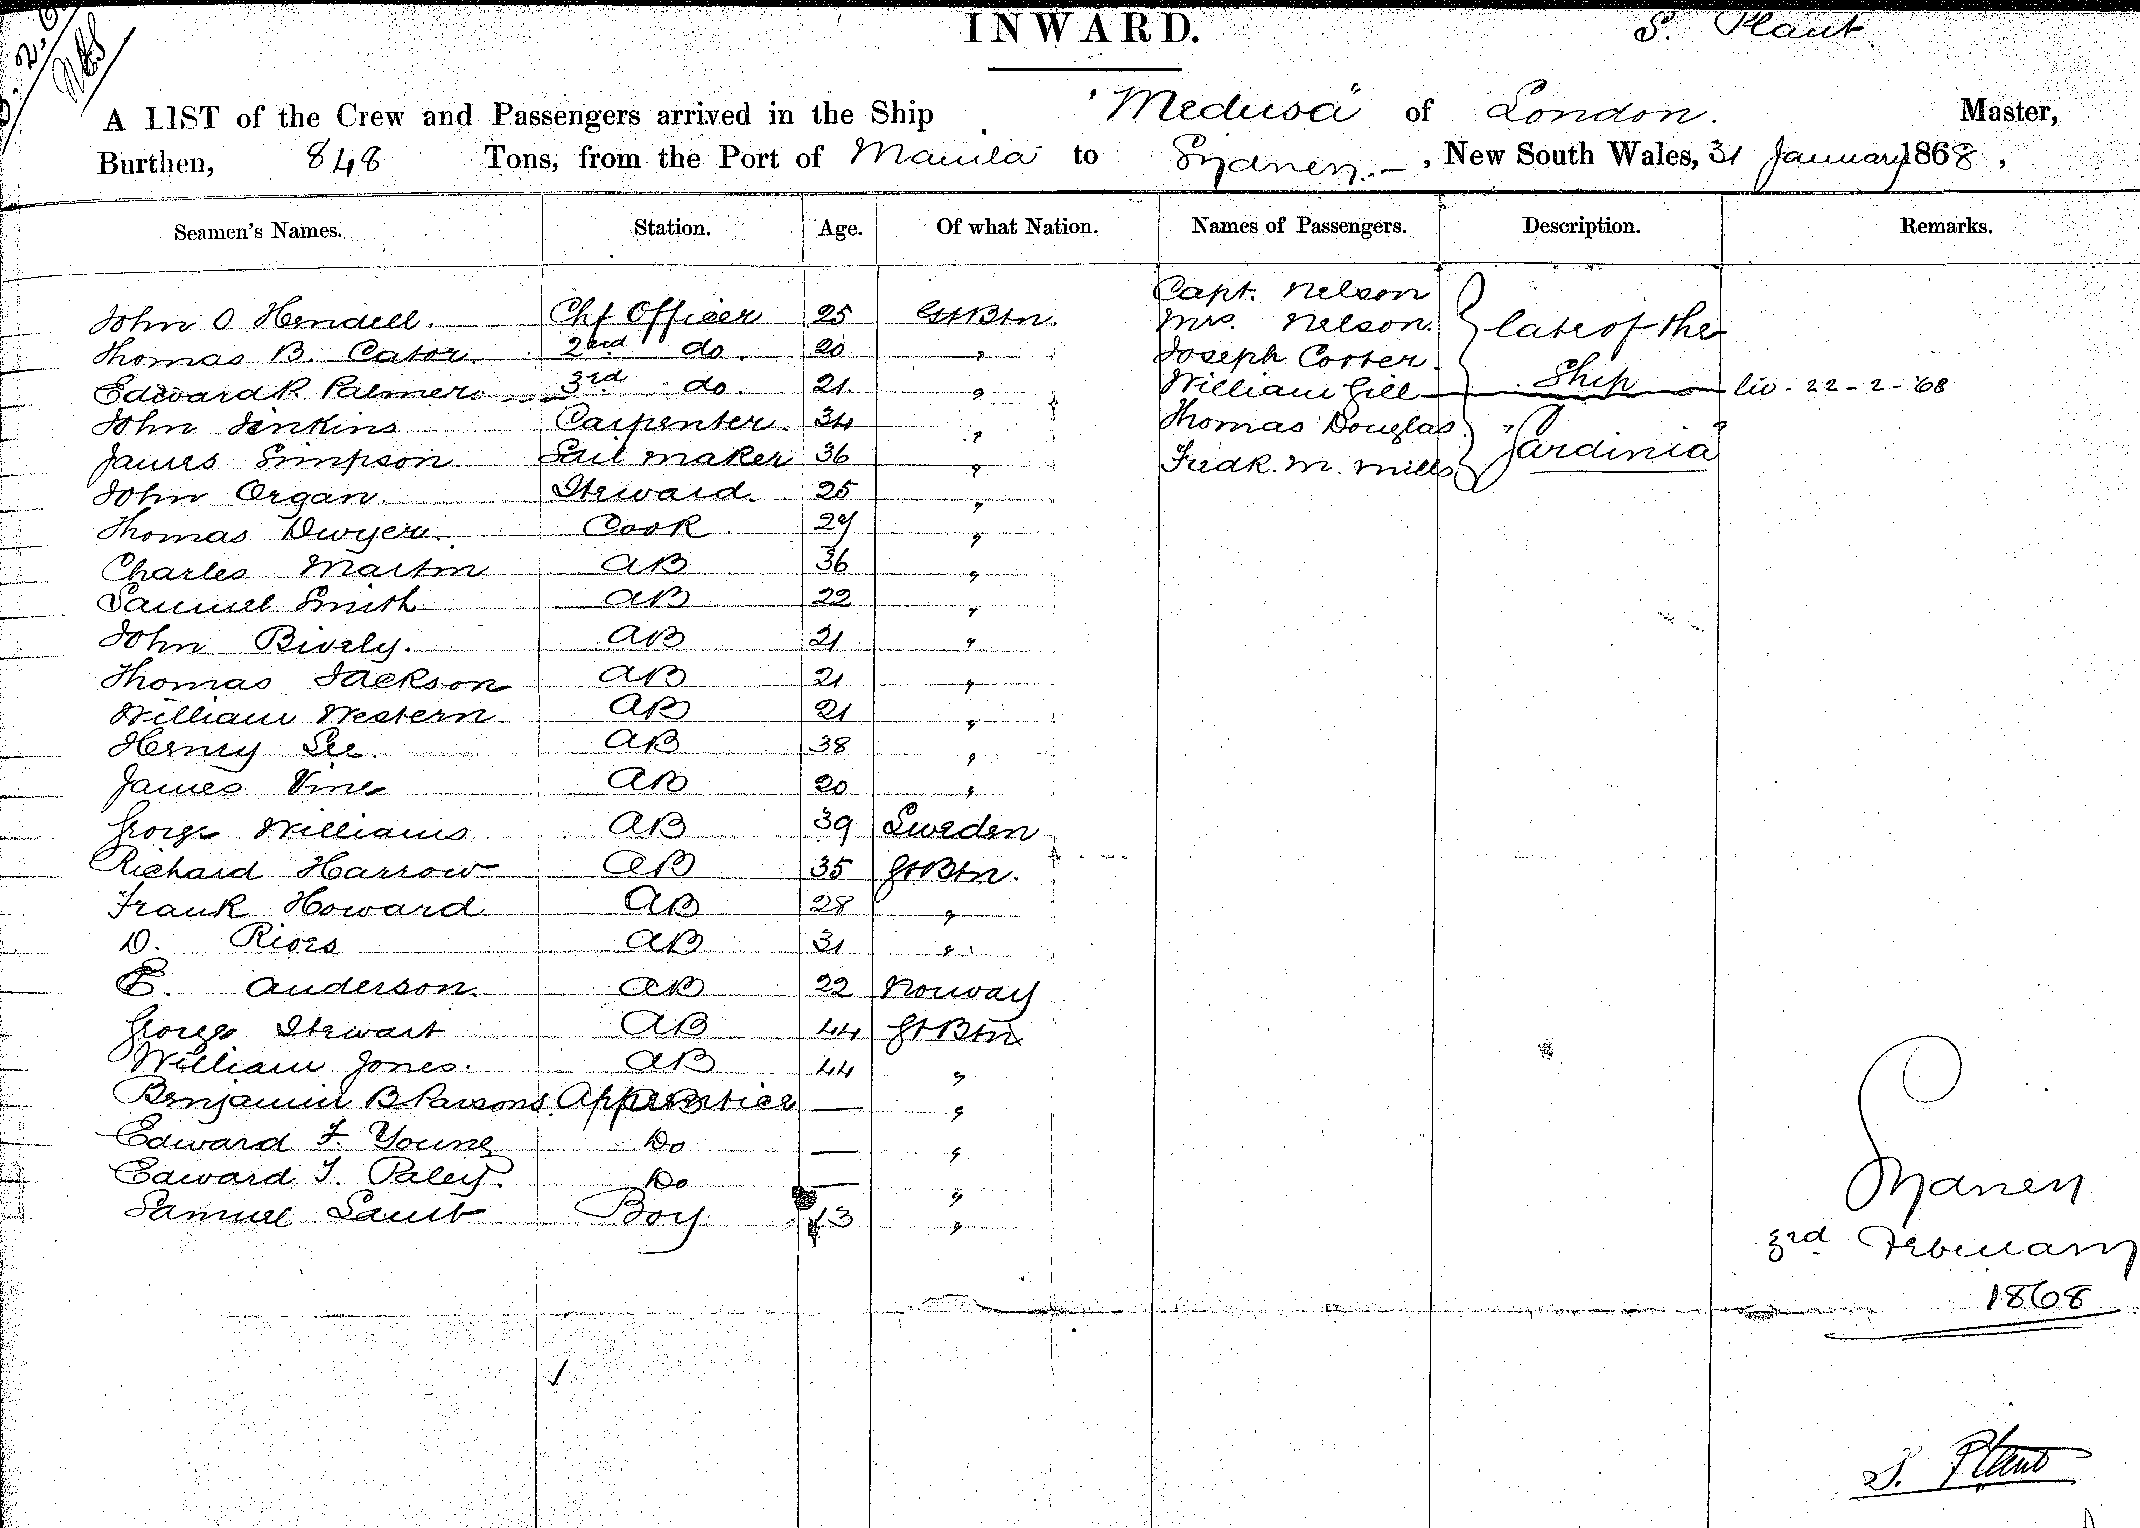 INWARD.
S. Plant
A LIST of the Crew and Passengers arrived in the Ship "Medusa" of London. Master,
Burthen, 848 Tons, from the Port of Manila to Sydney. , New South Wales, 31 January 1868,
Seamen's Names. Station. Age. Of what Nation. Names of Passengers. Description. Remarks.
Capt. Nelson
John O Hendell. Chf Officer 25 Gt Btn. Mrs. Nelson. late of the
Thomas B. Cator 2nd do. 20 " Joseph Corter.
Edward R Palmer 3rd do. 21 " William Gill Ship liv. 22-2-'68
John Jenkins Carpenter. 34 " Thomas Douglas "Sardinia"
James Simpson Sail maker 36 " Fredk. M. Mills
John Organ. Steward. 25 "
Thomas Dwyer. Cook 27 "
Charles Martin AB 36 "
Samuel Smith AB 22 "
John Bively. AB 21 "
Thomas Jackson AB 21 "
William Western AB 21 "
Henry Lee. AB 38 "
James Vine AB 20 "
George Williams AB 39 Sweden
Richard Harrow AB 35 Gt Btn.
Frank Howard AB 28 "
D. Riors AB 31 "
E. Anderson. AB 22 Norway
George Stewart AB 44 Gt Btn
William Jones. AB 44 "
Benjamin B Parsons Apprentice — "
Edward F. Young Do — "
Edward T. Paley. Do — "
Samuel Boy 13 "
Sydney
3rd February
1868
S. Plant